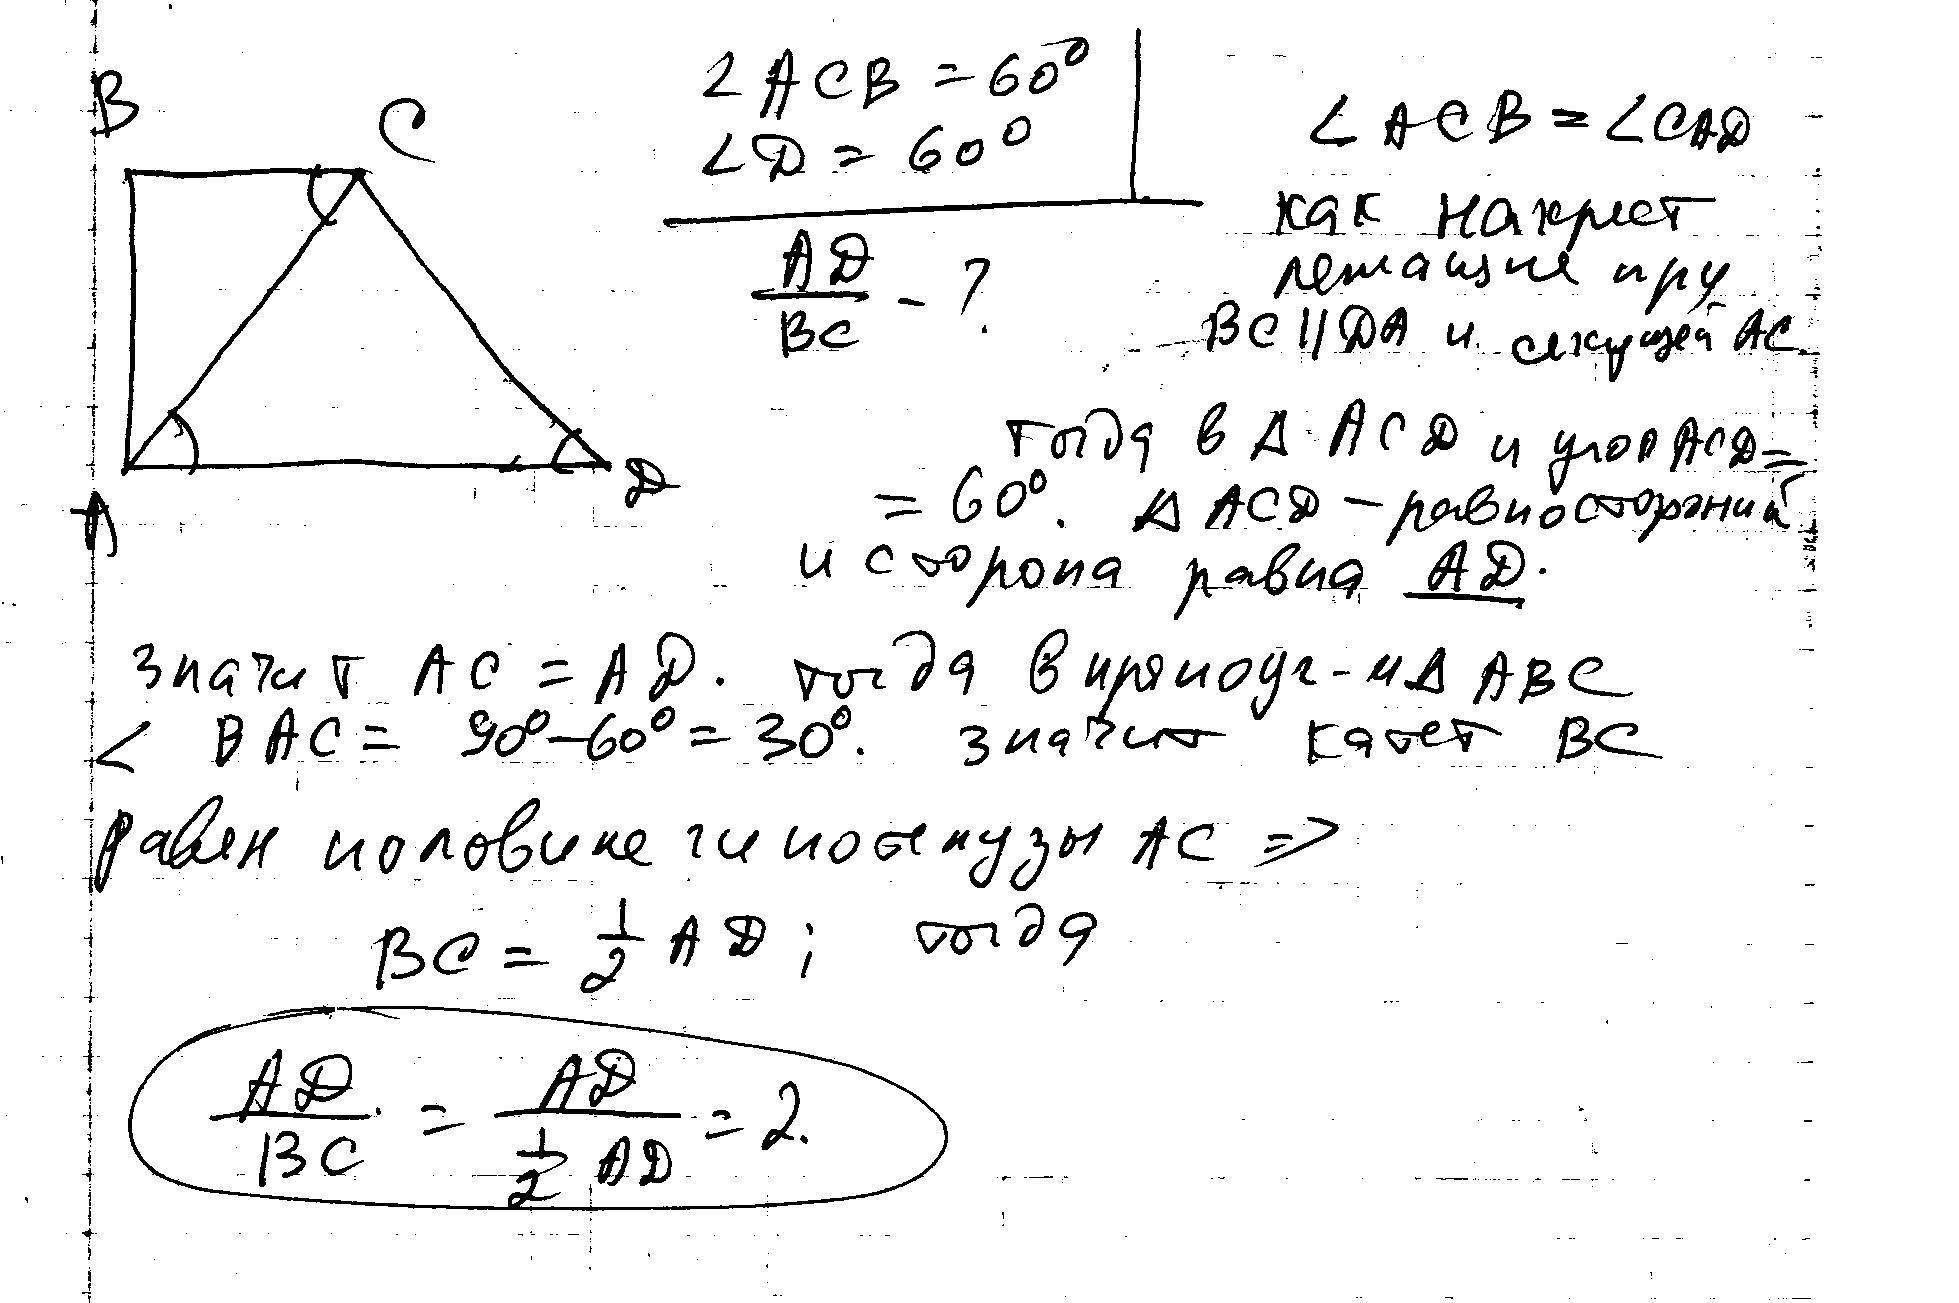 B
C
A
D
∠ACB = 60°
∠D = 60°
AD/BC - ?
∠ACB = ∠CAD
как накрест
лежащие при
BC || DA и секущей AC
тогда в Δ ACD и угол ACD =
= 60°. Δ ACD – равносторонний
и сторона равна AD.
значит AC = AD. тогда в прямоуг-м Δ ABC
∠ BAC = 90° – 60° = 30°. значит катет BC
равен половине гипотенузы AC =>
BC = 1/2 AD; тогда
AD/BC = AD/(1/2 AD) = 2.